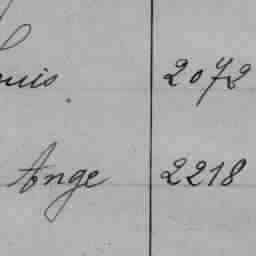 ouis 2072
Ange 2218